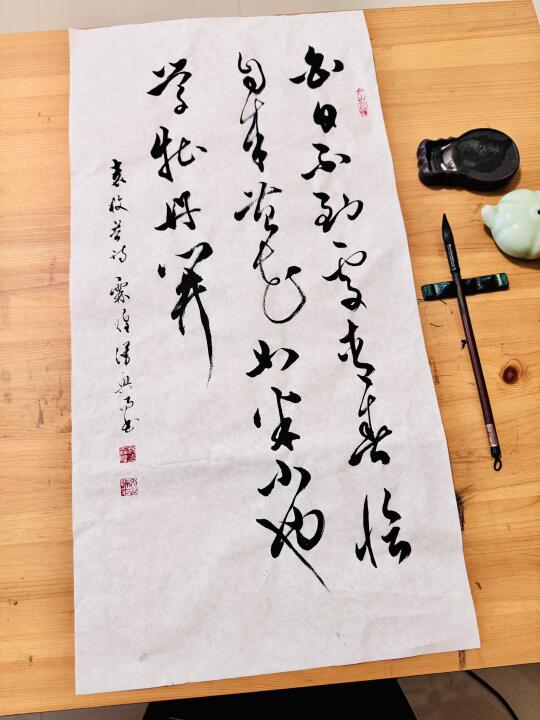 白日不到处青春恰
自来苔花如米小也
学牡丹開
袁枚苔诗